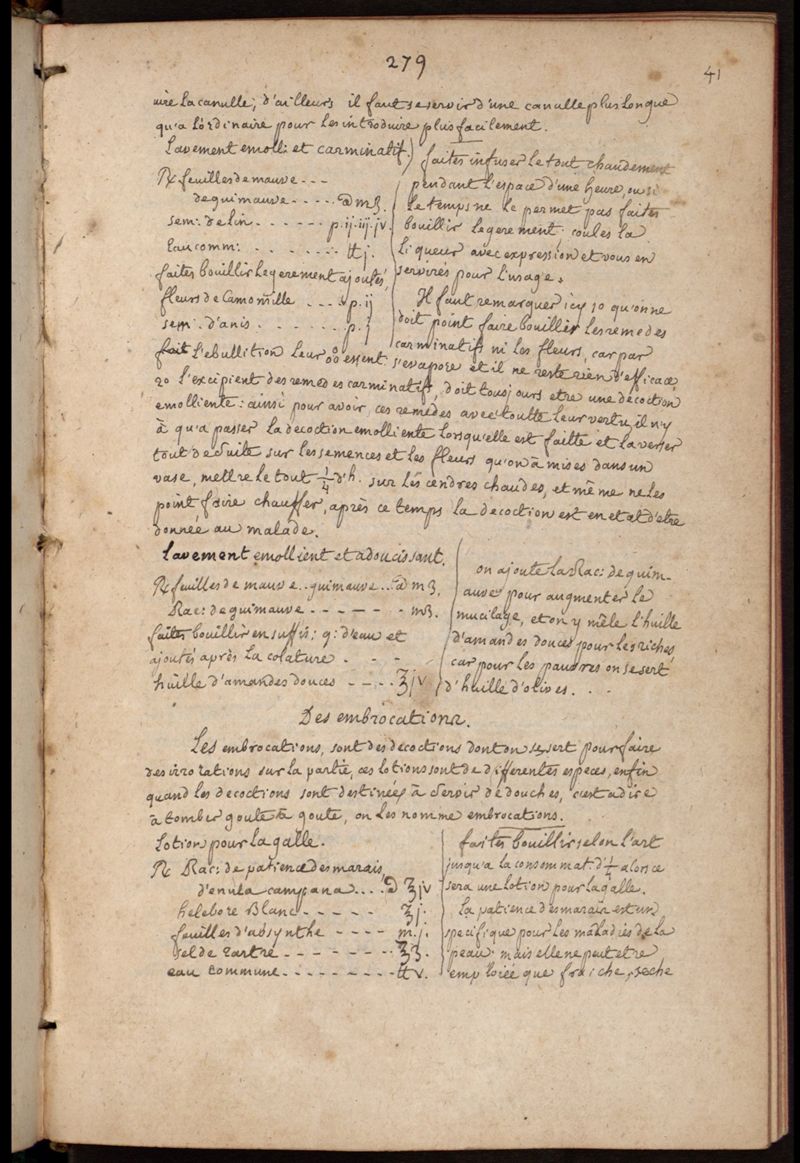 279
41
uire la canulle; d'ailleurs il faut se servir d'une canulle plus longue
qu'a l'ordinaire pour les introduire plus facilement.
Lavement emolli: et carminatif.
℞ feuilles de mauve - - -
de guimauve - - - - - ā mȝ.
sem: de lin - - - - - - p. ij. iij. jv.
Eau comm: - - - - - - - ℔ j.
faites bouillir legerement ajoutés
fleurs de Camomille - - - p. ij
sem. d'anis - - - - - - p. j
faites infuser le tout chaudement
pendant l'espace d'une heure, ou si
le temps ne le permet pas faites
bouillir legerement coules la
liqueur avec expression et vous en
servirés pour l'usage.
Il faut remarquer icy 1o qu'on ne
doit point faire bouillir les remedes
carminatifs ni les fleurs, car par
l'ebullition leur essent: s'evapore et il ne reste rien d'efficace
2o l'excipient des remedes carminatifs, doit tousjours etre une decoction
emolliente: ainsi pour avoir ces remedes avec toutte leur vertu, il n'y
à qu'a passer la decoction emolliente lorsqu'elle est faitte et la verser
tout de suite sur les semences et les fleurs qu'on à mises dans un
vase, mettre le tout ¼ d'h. sur les cendres chaudes, et même ne les
point faire chauffer, après ce temps la decoction est en etat d'etre
donnée au malade.
Lavement emollient et adoucissant.
℞ feuilles de mauve.. guimauve... ā mȝ.
Rac: de guimauve - - - - - - mȝ.
faites bouillir en suffis: q: d'eau et
ajoutés après la colature - - -
huille d'amandes douces - - - - ℥jv
on ajoute la Rac: de guim-
auve pour augmenter le
mucilage, et on y mêle l'huille
d'amandes douces pour les riches
car pour les pauvres on se sert
d'huille d'olives. . .
Des embrocations.
Les embrocations, sont des decoctions dont on se sert pour faire
des irrorations sur la partie, ces lotions sont de differentes especes, enfin
quand les decoctions sont destinées à servir de douches, c'est a dire
à tomber goute à goute, on les nomme embrocations.
Lotion pour la galle.
℞ Rac: de patience des marais,
d'enula campana . . . . ā ℥jv
helebore Blanc - - - - - ℥j.
feuilles d'absynthe - - - - m. j.
sel de tartre - - - - - - - ℥ȝ.
eau commune - - - - - - - - - ℔v.
faites bouillir selon l'art
jusqu'a la consommat: d'½ alors ce
sera une lotion pour la galle.
La patience des marais est un
specifique pour les maladies de la
peau: mais elle ne peut etre
emploiée que fraiche, seche